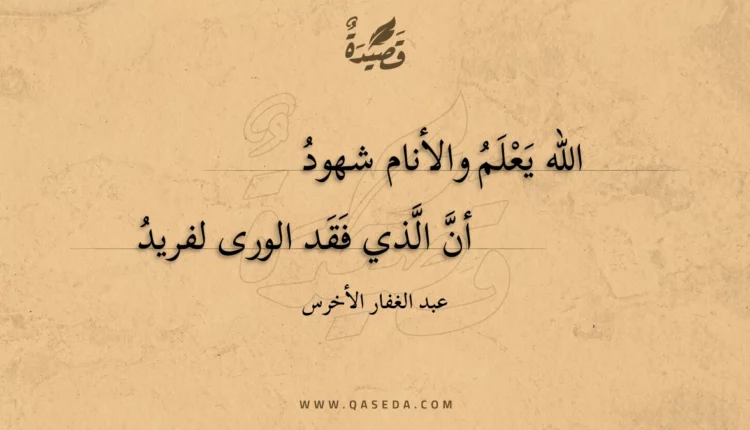 قَصِيْدَةٌ
الله يَعْلَمُ والأنام شهودُ
أنَّ الَّذي فَقَد الورى لفريدُ
عبد الغفار الأخرس
WWW.QASEDA.COM